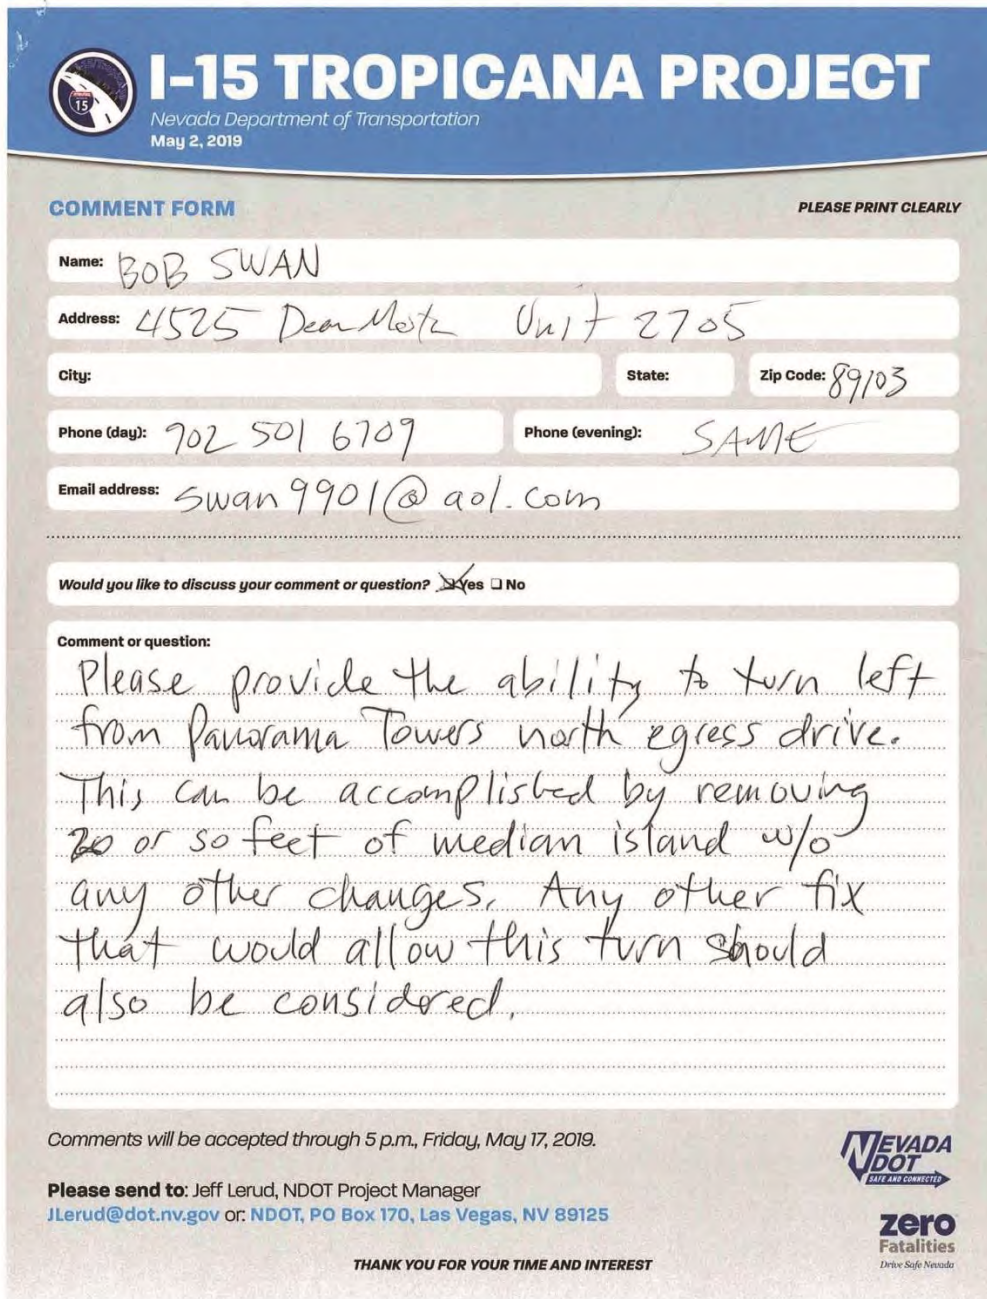 I-15 TROPICANA PROJECT
15
Nevada Department of Transportation
May 2, 2019
COMMENT FORM
PLEASE PRINT CLEARLY
Name: BOB SWAN
Address: 4525 Dean Unit 2705
City: State: Zip Code: 89103
Phone (day): 702 501 6709 Phone (evening): SAME
Email address: swan9901@aol.com
Would you like to discuss your comment or question? Yes No
Comment or question:
Please provide the ability to turn left
from Panorama Towers north egress drive.
This can be accomplished by removing
20 or so feet of median island w/o
any other changes. Any other fix
that would allow this turn should
also be considered.
Comments will be accepted through 5 p.m., Friday, May 17, 2019.
NEVADA
DOT
SAFE AND CONNECTED
Please send to: Jeff Lerud, NDOT Project Manager
JLerud@dot.nv.gov or: NDOT, PO Box 170, Las Vegas, NV 89125
zero
Fatalities
Drive Safe Nevada
THANK YOU FOR YOUR TIME AND INTEREST